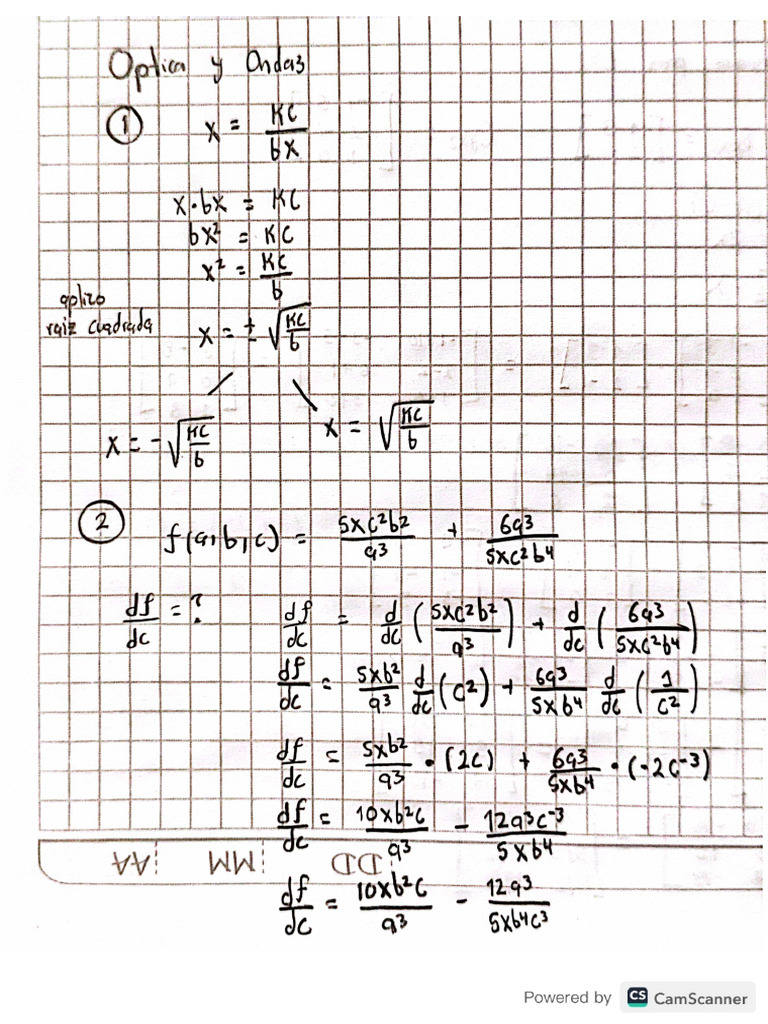 Optica y Ondas
① x = KC/bx
x·bx = KC
bx² = KC
x² = KC/b
aplizo
raiz cuadrada
x = ± √(KC/b)
x = -√(KC/b)
x = √(KC/b)
② f(a,b,c) = 5xc²b²/a³ + 6a³/5xc²b⁴
df/dc = ? df/dc = d/dc (5xc²b²/a³) + d/dc (6a³/5xc²b⁴)
df/dc = 5xb²/a³ d/dc (c²) + 6a³/5xb⁴ d/dc (1/c²)
df/dc = 5xb²/a³ · (2c) + 6a³/5xb⁴ · (-2c⁻³)
df/dc = 10xb²c/a³ - 12a³c⁻³/5xb⁴
AA MM DD
df/dc = 10xb²c/a³ - 12a³/5xb⁴c³
Powered by CS CamScanner